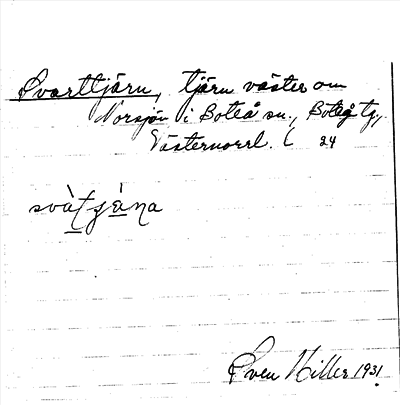 Svarttjärn, tjärn väster om
Norsjön i Boteå sn., Boteå tg,
Västernorrl. ( 24
svàtjὰna
Sven Hiller 1931.